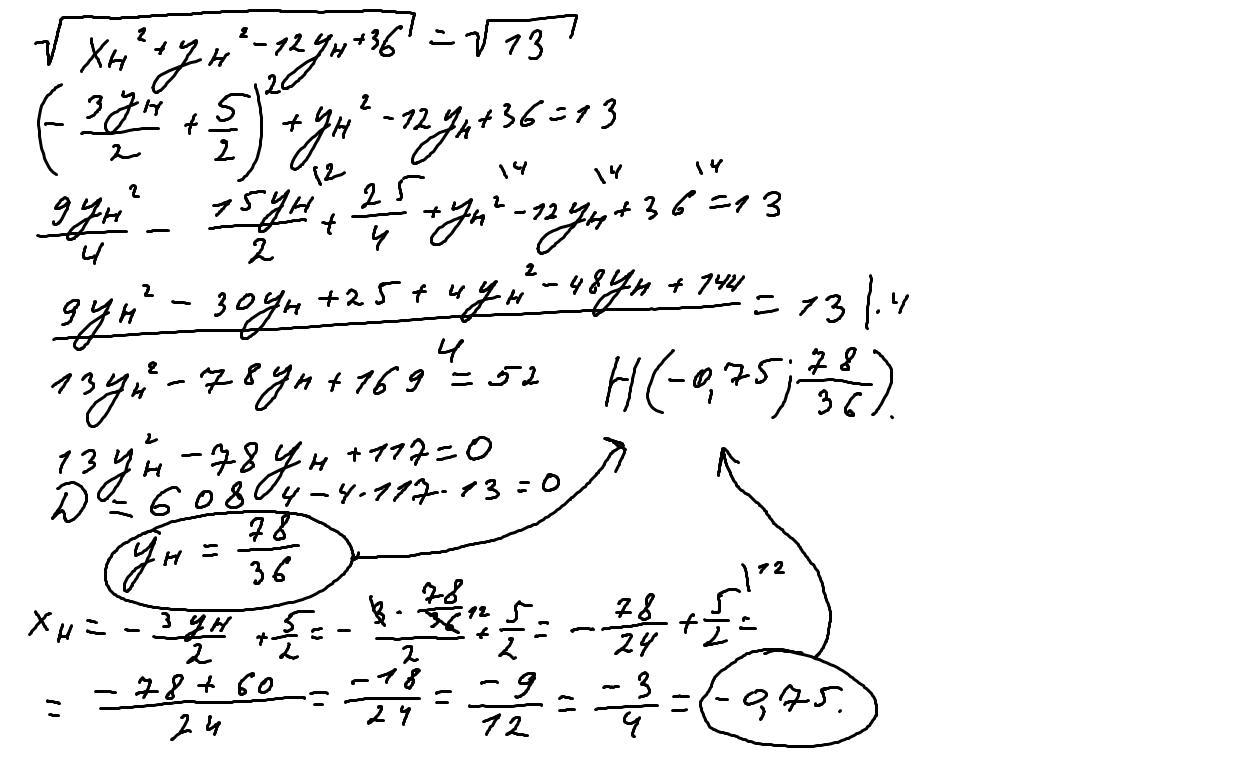 √(x_H² + y_H² - 12y_H + 36) = √13
(- 3y_H/2 + 5/2)² + y_H² - 12y_H + 36 = 13
9y_H²/4 - 15y_H/2 \2 + 25/4 + y_H² \4 - 12y_H \4 + 36 \4 = 13
(9y_H² - 30y_H + 25 + 4y_H² - 48y_H + 144)/4 = 13 |·4
13y_H² - 78y_H + 169 = 52 H(-0,75; 78/36).
13y_H² - 78y_H + 117 = 0
D = 6084 - 4·117·13 = 0
y_H = 78/36
x_H = - 3y_H/2 + 5/2 = - (3 · 78/36 12)/2 + 5/2 = - 78/24 + 5/2 \12 =
= (-78 + 60)/24 = -18/24 = -9/12 = -3/4 = -0,75.